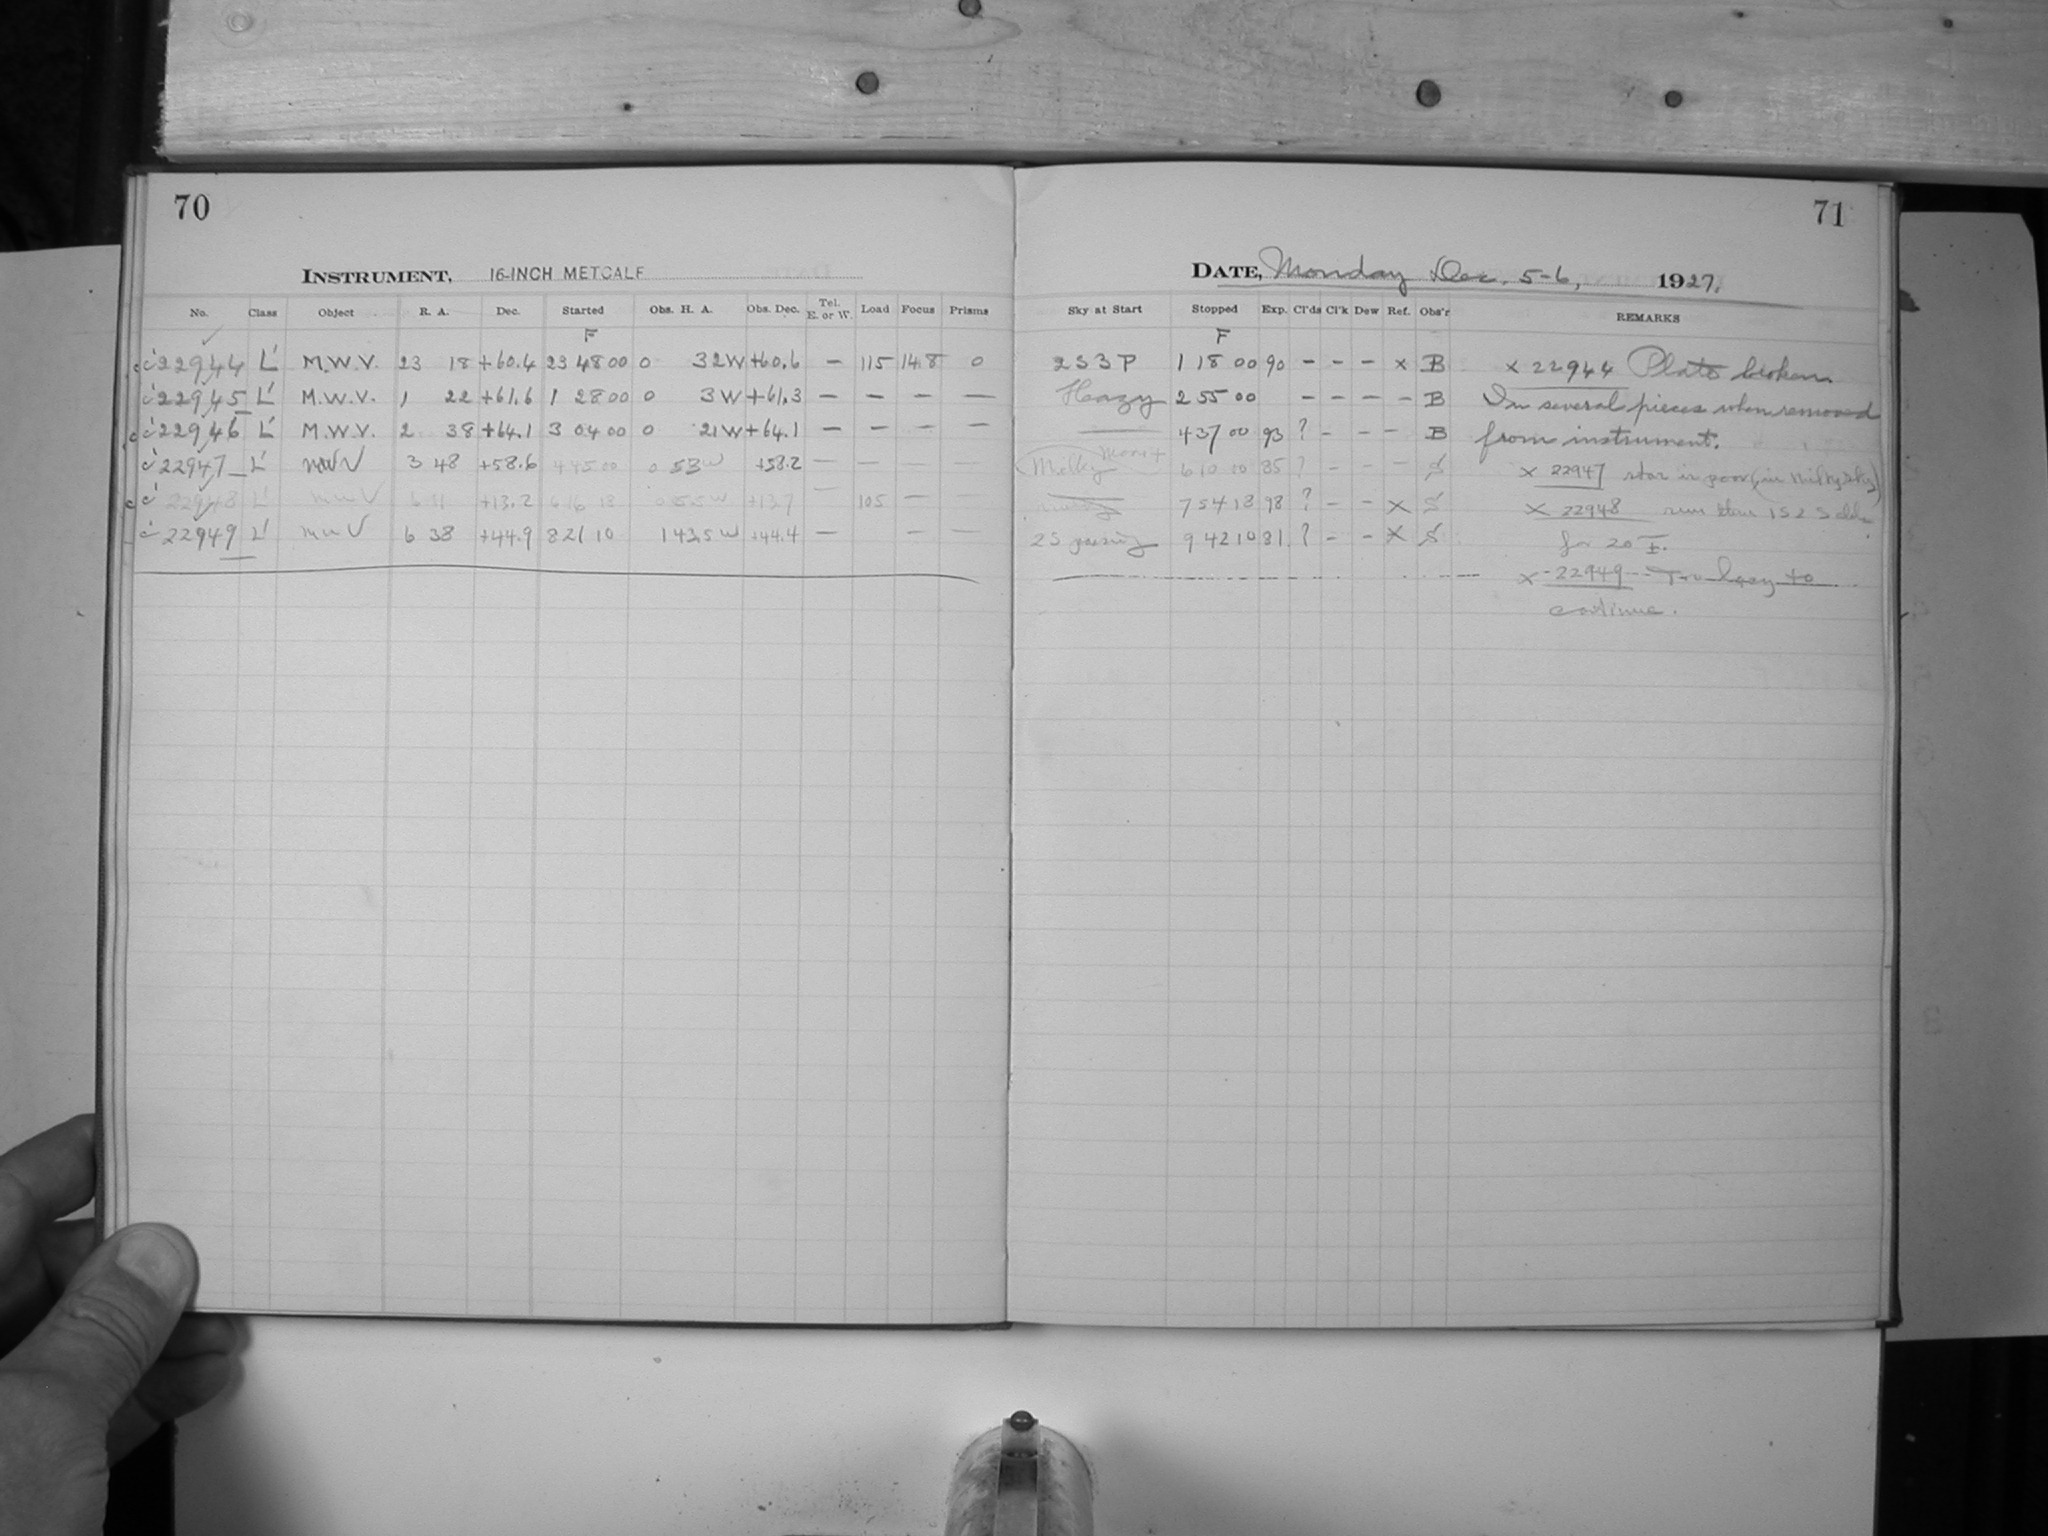 70
INSTRUMENT, 16-INCH METCALF
No. Class Object R. A. Dec. Started Obs. H. A. Obs. Dec. Tel. E. or W. Load Focus Prisms
F
22944 L' M.W.V. 23 18 +60.4 23 48 00 0 32 W +60.6 — 115 14.8 0
22945 L' M.W.V. 1 22 +61.6 1 28 00 0 3 W +61.3 — — — —
22946 L' M.W.V. 2 38 +64.1 3 04 00 0 21 W +64.1 — — — —
22947 L' MWV 3 48 +58.6 4 45 00 0 53 W +58.2 — — — —
22948 L' MWV +13.2 6 16 18 +13.7 — 105 —
22949 L' MWV 6 38 +44.9 8 21 10 1 43.5 W +44.4 — — —
71
DATE, Monday Dec. 5-6, 1927.
Sky at Start Stopped Exp. Cl'ds Cl'k Dew Ref. Obs'r REMARKS
F
2 S 3 P 1 18 00 90 — — — x B x 22944 Plate broken
Hazy 2 55 00 — — — — B In several pieces when removed
— 4 37 00 93 ? - — — B from instrument.
Milky 6 10 00 85 ? - - — S x 22947 star is poor (in Milky Sky)
7 54 18 98 ? - - x S x 22948
2S 9 42 10 81 ? - - x S for 20
x 22949 Too hazy to
continue.